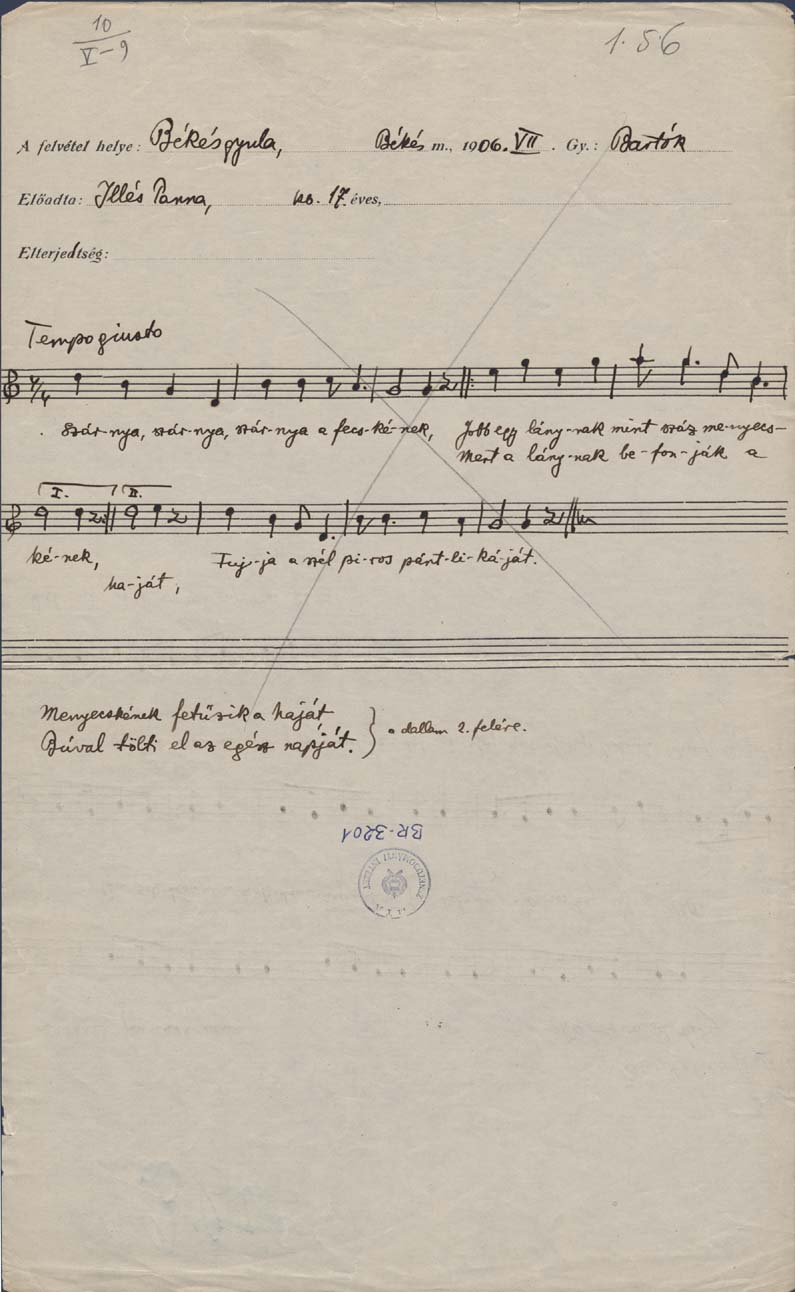 10
V-9
1.5.6
A felvétel helye: Békésgyula, Békés m., 1906. VII. Gy.: Bartók
Előadta: Illés Panna, kb. 17 éves,
Elterjedtség:
Tempo giusto
Szár-nya, szár-nya, szár-nya a fecs-ké-nek, Jobb egy lány-nak mint száz me-nyecs-
Mert a lány-nak be-fon-ják a
I. II.
ké-nek, Fuj-ja a szél pi-ros pánt-li-ká-ját.
ha-ját,
Menyecskének fetűzik a haját,
Búval tölti el az egész napját. } a dallam 2. felére.
BR-3201